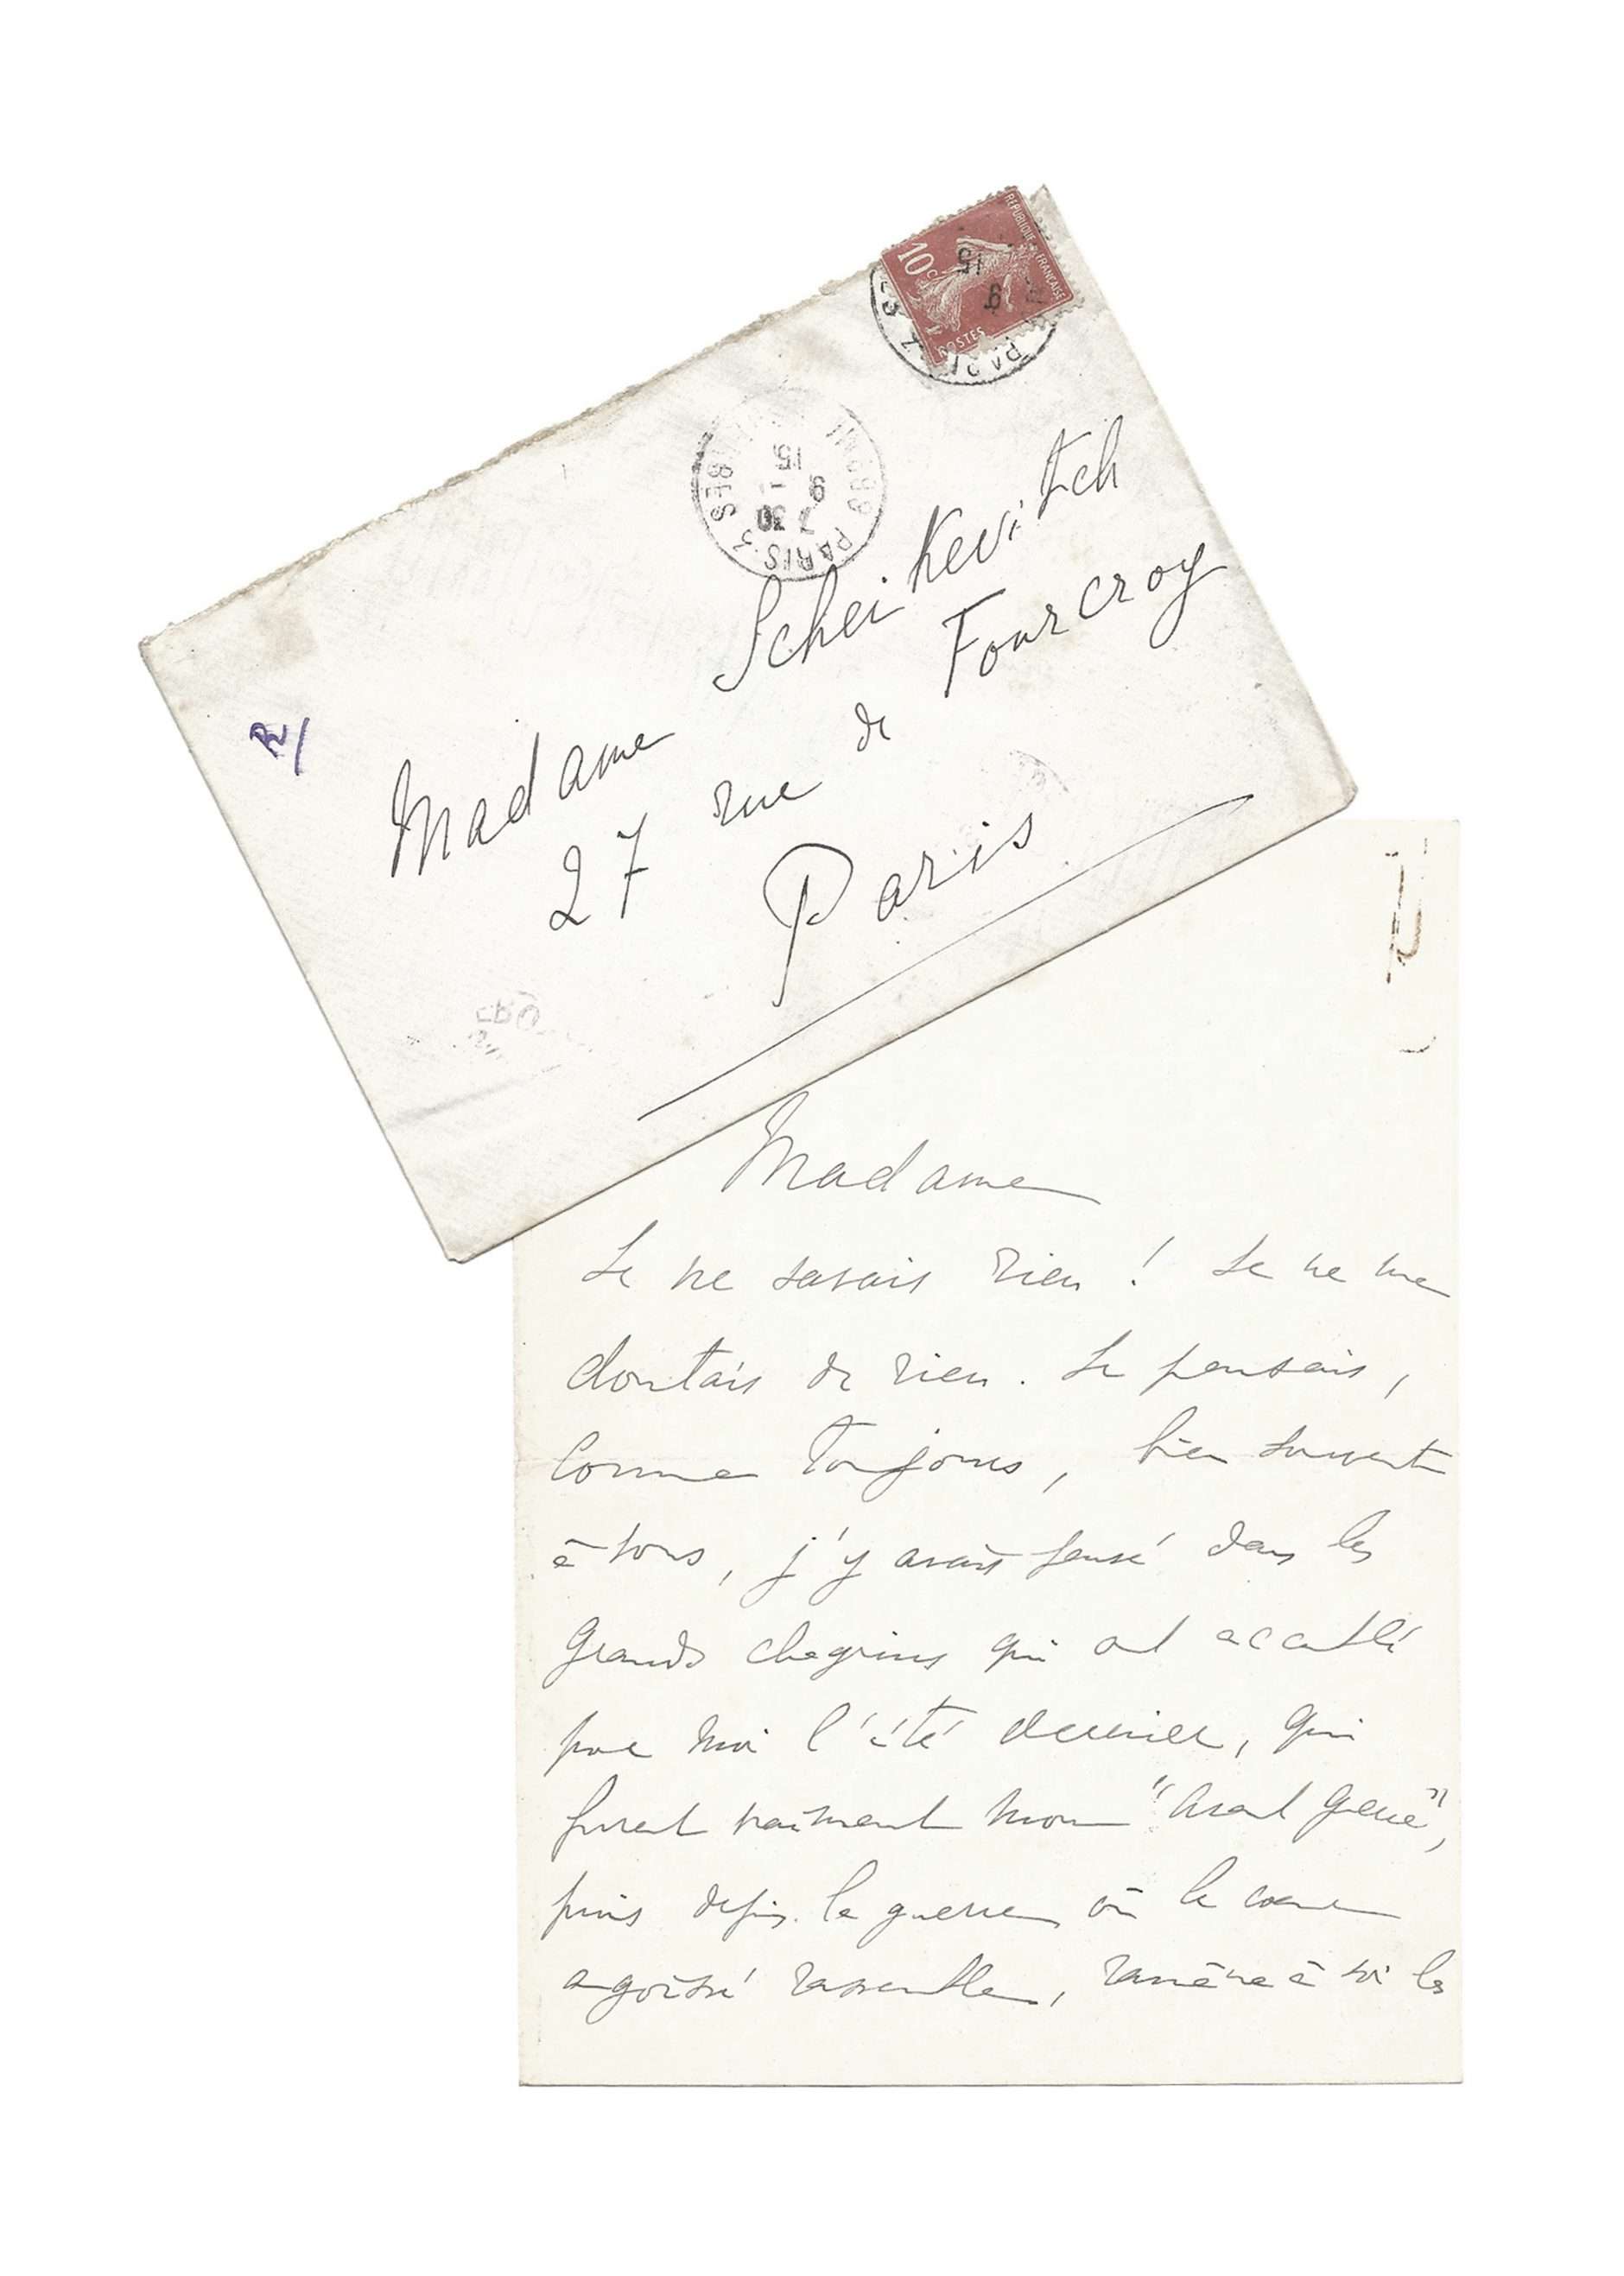 RÉPUBLIQUE FRANÇAISE
10c
POSTES
15
9
15
9
7 30
PARIS 3
R/
Madame Scheikevitch
27 rue de Fourcroy
Paris
Madame
Je ne savais rien ! Je ne me
doutais de rien. Je pensais,
comme toujours, bien souvent
à vous, j'y avais pensé dans les
grands chagrins qui ont accablé
pour moi l'été dernier, qui
furent vraiment mon "Avant guerre",
puis depuis la guerre où le cœur
angoissé rassemble, ramène à soi les